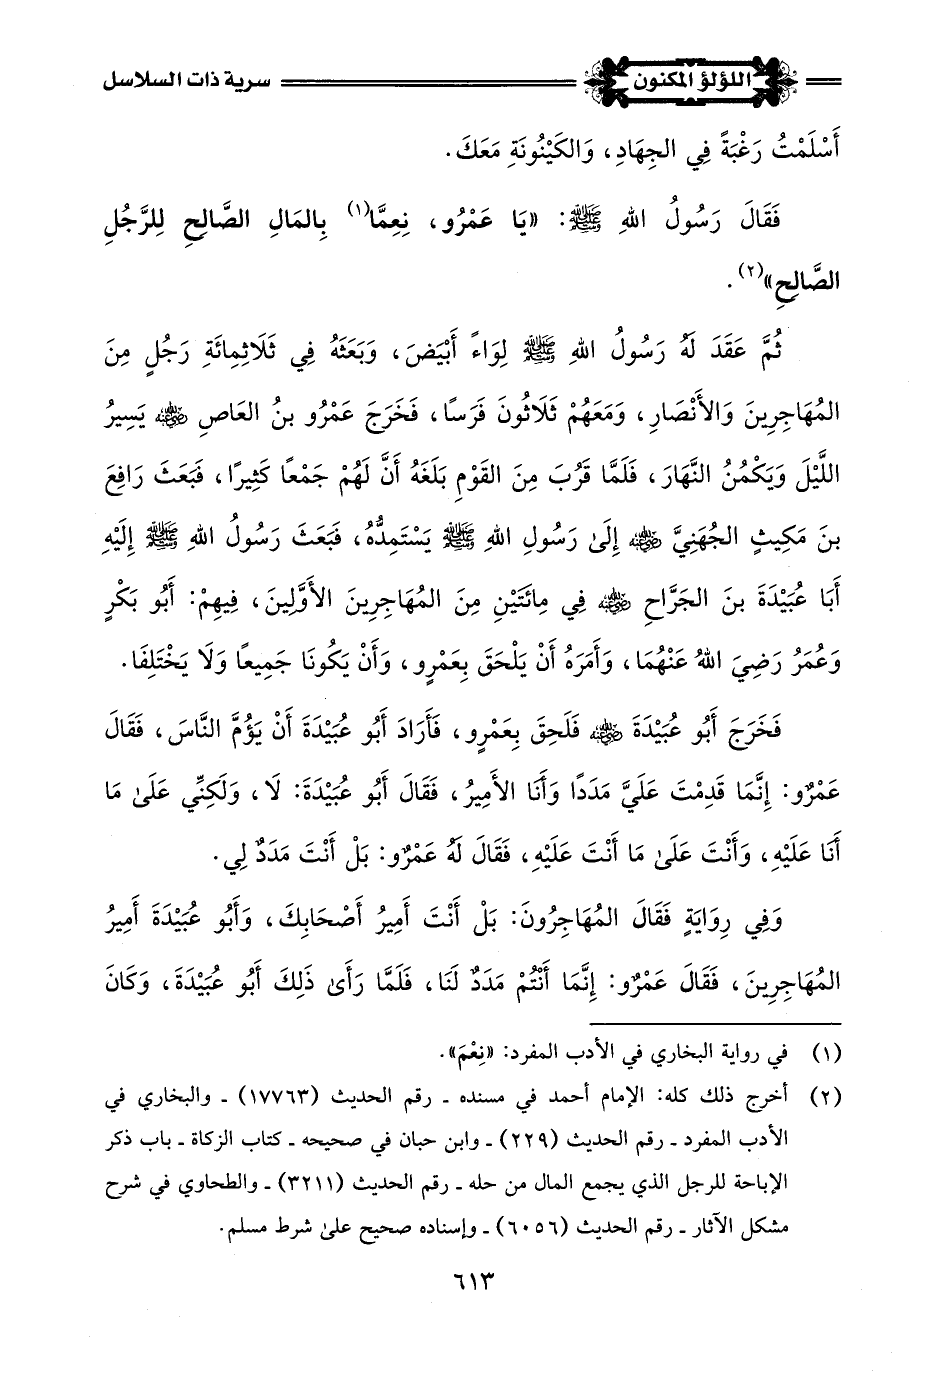 اللؤلؤ المكنون سرية ذات السلاسل
أَسْلَمْتُ رَغْبَةً فِي الجِهَادِ، وَالكَيْنُونَةِ مَعَكَ.
فَقَالَ رَسُولُ اللهِ ﷺ: «يَا عَمْرُو، نِعِمَّا(١) بِالمَالِ الصَّالِحِ لِلرَّجُلِ
الصَّالِحِ»(٢).
ثُمَّ عَقَدَ لَهُ رَسُولُ اللهِ ﷺ لِوَاءً أَبْيَضَ، وَبَعَثَهُ فِي ثَلَاثِمِائَةِ رَجُلٍ مِنَ
المُهَاجِرِينَ وَالأَنْصَارِ، وَمَعَهُمْ ثَلَاثُونَ فَرَسًا، فَخَرَجَ عَمْرُو بنُ العَاصِ رضي الله عنه يَسِيرُ
اللَّيْلَ وَيَكْمُنُ النَّهَارَ، فَلَمَّا قَرُبَ مِنَ القَوْمِ بَلَغَهُ أَنَّ لَهُمْ جَمْعًا كَثِيرًا، فَبَعَثَ رَافِعَ
بنَ مَكِيثٍ الجُهَنِيَّ رضي الله عنه إِلَىٰ رَسُولِ اللهِ ﷺ يَسْتَمِدُّهُ، فَبَعَثَ رَسُولُ اللهِ ﷺ إِلَيْهِ
أَبَا عُبَيْدَةَ بنَ الجَرَّاحِ رضي الله عنه فِي مِائَتَيْنِ مِنَ المُهَاجِرِينَ الأَوَّلِينَ، فِيهِمْ: أَبُو بَكْرٍ
وَعُمَرُ رَضِيَ اللهُ عَنْهُمَا، وَأَمَرَهُ أَنْ يَلْحَقَ بِعَمْرٍو، وَأَنْ يَكُونَا جَمِيعًا وَلَا يَخْتَلِفَا.
فَخَرَجَ أَبُو عُبَيْدَةَ رضي الله عنه فَلَحِقَ بِعَمْرٍو، فَأَرَادَ أَبُو عُبَيْدَةَ أَنْ يَؤُمَّ النَّاسَ، فَقَالَ
عَمْرٌو: إِنَّمَا قَدِمْتَ عَلَيَّ مَدَدًا وَأَنَا الأَمِيرُ، فَقَالَ أَبُو عُبَيْدَةَ: لَا، وَلَكِنِّي عَلَىٰ مَا
أَنَا عَلَيْهِ، وَأَنْتَ عَلَىٰ مَا أَنْتَ عَلَيْهِ، فَقَالَ لَهُ عَمْرٌو: بَلْ أَنْتَ مَدَدٌ لِي.
وَفِي رِوَايَةٍ فَقَالَ المُهَاجِرُونَ: بَلْ أَنْتَ أَمِيرُ أَصْحَابِكَ، وَأَبُو عُبَيْدَةَ أَمِيرُ
المُهَاجِرِينَ، فَقَالَ عَمْرٌو: إِنَّمَا أَنْتُمْ مَدَدٌ لَنَا، فَلَمَّا رَأَىٰ ذَلِكَ أَبُو عُبَيْدَةَ، وَكَانَ
(١) في رواية البخاري في الأدب المفرد: «نِعْمَ».
(٢) أخرج ذلك كله: الإمام أحمد في مسنده ـ رقم الحديث (١٧٧٦٣) ـ والبخاري في
الأدب المفرد ـ رقم الحديث (٢٢٩) ـ وابن حبان في صحيحه ـ كتاب الزكاة ـ باب ذكر
الإباحة للرجل الذي يجمع المال من حله ـ رقم الحديث (٣٢١١) ـ والطحاوي في شرح
مشكل الآثار ـ رقم الحديث (٦٠٥٦) ـ وإسناده صحيح علىٰ شرط مسلم.
٦١٣